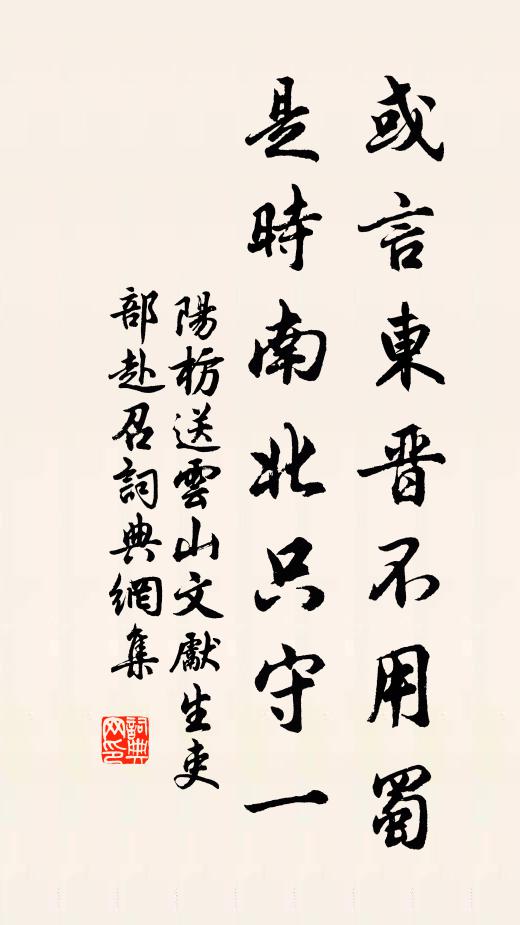 或言東晋不用蜀
是時南北只守一
陽枋送雲山文獻生吏
部赴召詞典網集
詞典
网印